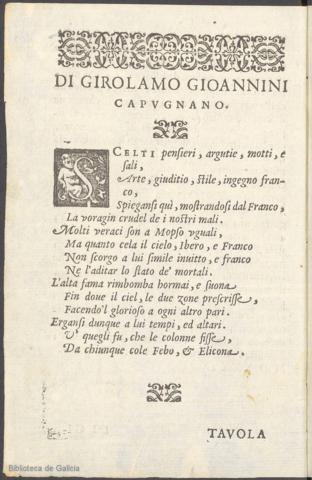 DI GIROLAMO GIOANNINI
CAPVGNANO.
SCELTI pensieri, argutie, motti, e
sali,
Arte, giuditio, stile, ingegno fran-
co,
Spiegansi quì, mostrandosi dal Franco,
La voragin crudel de i nostri mali.
Molti veraci son a Mopso vguali,
Ma quanto cela il cielo, Ibero, e Franco
Non scorgo a lui simile inuitto, e franco
Ne l'aditar lo stato de' mortali.
L'alta fama rimbomba hormai, e suona
Fin doue il ciel, le due zone prescrisse,
Facendo'l glorioso a ogni altro pari.
Ergansi dunque a lui tempi, ed altari.
V' quegli fu, che le colonne fisse,
Da chiunque cole Febo, & Elicona.
TAVOLA
Biblioteca de Galicia